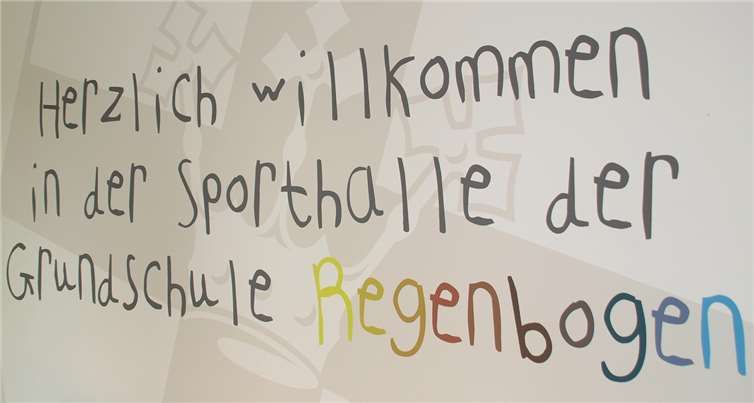 Herzlich willkommen
in der Sporthalle der
Grundschule Regenbogen